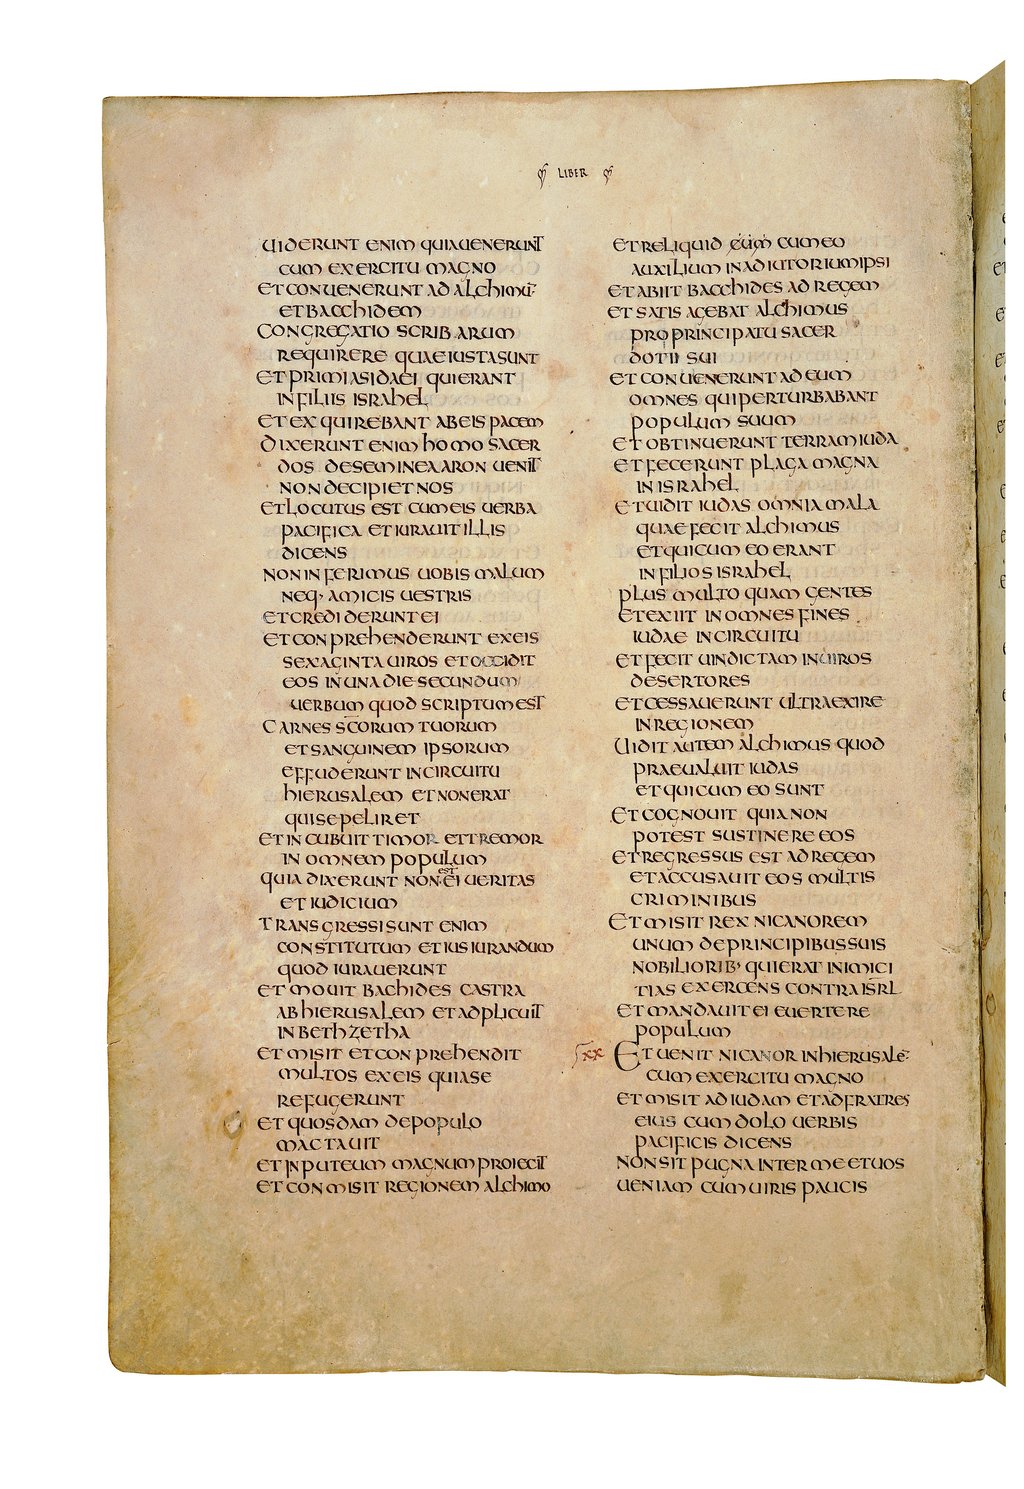 LIBER
UIDERUNT ENIM QUIA UENERUNT
CUM EXERCITU MAGNO
ET CONUENERUNT AD ALCHIMŪ
ET BACCHIDEM
CONGREGATIO SCRIBARUM
REQUIRERE QUAE IUSTA SUNT
ET PRIMI ASIDAEI QUI ERANT
IN FILIIS ISRAHEL
ET EXQUIREBANT AB EIS PACEM
DIXERUNT ENIM HOMO SACER
DOS DE SEMINE AARON UENIT
NON DECIPIET NOS
ET LOCUTUS EST CUM EIS UERBA
PACIFICA ET IURAUIT ILLIS
DICENS
NON INFERIMUS UOBIS MALUM
NEQ· AMICIS UESTRIS
ET CREDIDERUNT EI
ET CONPREHENDERUNT EX EIS
SEXAGINTA UIROS ET OCCIDIT
EOS IN UNA DIE SECUNDUM
UERBUM QUOD SCRIPTUM EST
CARNES SCORUM TUORUM
ET SANGUINEM IPSORUM
EFFUDERUNT IN CIRCUITU
HIERUSALEM ET NON ERAT
QUI SEPELIRET
ET INCUBUIT TIMOR ET TREMOR
IN OMNEM POPULUM
QUIA DIXERUNT NON EST EI UERITAS
ET IUDICIUM
TRANSGRESSI SUNT ENIM
CONSTITUTUM ET IUSIURANDUM
QUOD IURAUERUNT
ET MOUIT BACHIDES CASTRA
AB HIERUSALEM ET ADPLICUIT
IN BETHZETHA
ET MISIT ET CONPREHENDIT
MULTOS EX EIS QUI A SE
REFUGERUNT
ET QUOSDAM DE POPULO
MACTAUIT
ET IN PUTEUM MAGNUM PROIECIT
ET CONMISIT REGIONEM ALCHIMO
ET RELIQUID EUM CUM EO
AUXILIUM IN ADIUTORIUM IPSI
ET ABIIT BACCHIDES AD REGEM
ET SATIS AGEBAT ALCHIMUS
PRO PRINCIPATU SACER
DOTII SUI
ET CONUENERUNT AD EUM
OMNES QUI PERTURBABANT
POPULUM SUUM
ET OBTINUERUNT TERRAM IUDA
ET FECERUNT PLAGA MAGNA
IN ISRAHEL
ET UIDIT IUDAS OMNIA MALA
QUAE FECIT ALCHIMUS
ET QUI CUM EO ERANT
IN FILIOS ISRAHEL
PLUS MULTO QUAM GENTES
ET EXIIT IN OMNES FINES
IUDAE IN CIRCUITU
ET FECIT UINDICTAM IN UIROS
DESERTORES
ET CESSAUERUNT ULTRA EXIRE
IN REGIONEM
UIDIT AUTEM ALCHIMUS QUOD
PRAEUALUIT IUDAS
ET QUI CUM EO SUNT
ET COGNOUIT QUIA NON
POTEST SUSTINERE EOS
ET REGRESSUS EST AD REGEM
ET ACCUSAUIT EOS MULTIS
CRIMINIBUS
ET MISIT REX NICANOREM
UNUM DE PRINCIPIBUS SUIS
NOBILIORIB· QUI ERAT INIMICI
TIAS EXERCENS CONTRA ISRL
ET MANDAUIT EI EUERTERE
POPULUM
XX ET UENIT NICANOR IN HIERUSALĒ
CUM EXERCITU MAGNO
ET MISIT AD IUDAM ET AD FRATRES
EIUS CUM DOLO UERBIS
PACIFICIS DICENS
NON SIT PUGNA INTER ME ET UOS
UENIAM CUM UIRIS PAUCIS